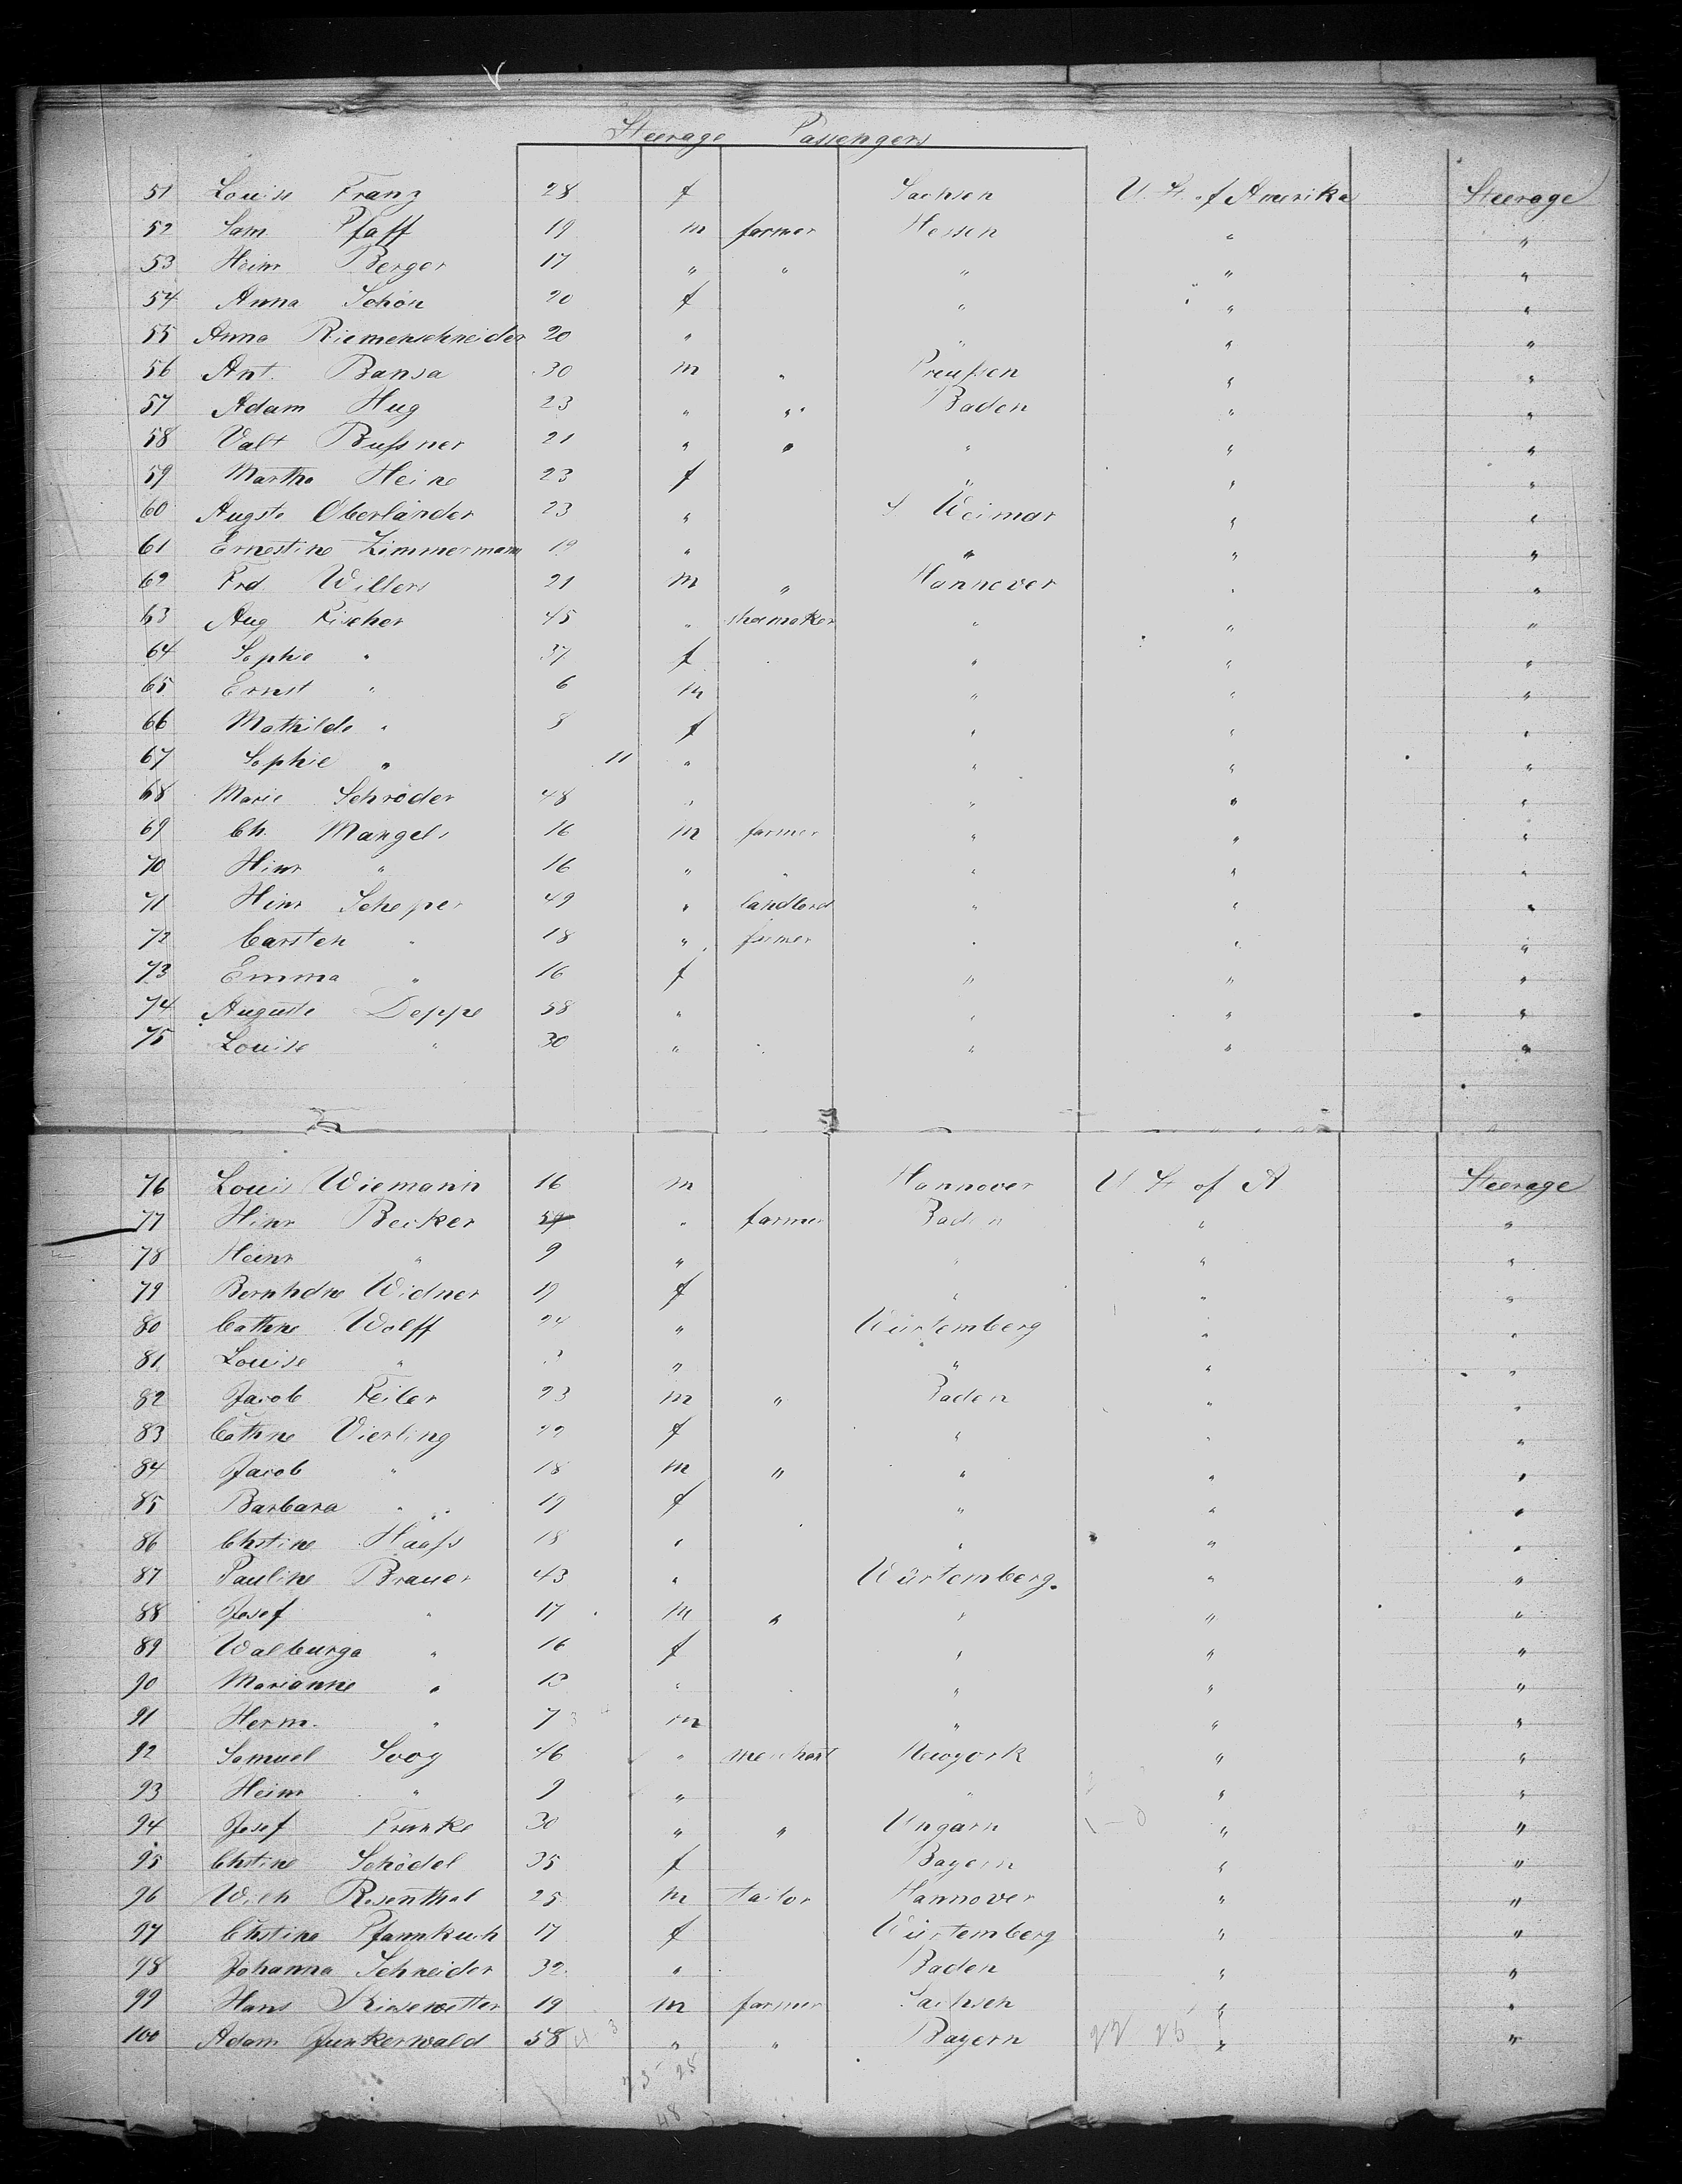 Steerage Passengers
51 Louise Franz 28 f Sachsen U. St. of Amerika Steerage
52 Sam. Pfaff 19 m farmer Hessen " "
53 Heinr Berger 17 " " " " "
54 Anna Schön 20 f " " "
55 Anna Riemenschneider 20 " " " "
56 Ant. Bansa 30 m " Preußen " "
57 Adam Hug 23 " " Baden " "
58 Valt Bußner 21 " " " " "
59 Martha Heine 23 f " " "
60 Augste Oberländer 23 " S Weimar " "
61 Ernestine Zimmermann 19 " " " "
62 Frd. Willers 21 m " Hannover " "
63 Aug Fischer 45 " shoemaker " " "
64 Sophie " 37 f " " "
65 Ernst " 6 m " " "
66 Mathilde " 8 f " " "
67 Sophie " 11 " " " "
68 Marie Schröder 48 " " " "
69 Ch. Mangels 16 m farmer " " "
70 Hinr " 16 " " " " "
71 Hinr Scheper 49 " landlord " " "
72 Carsten " 18 " farmer " " "
73 Emma " 16 f " " "
74 Auguste Deppe 58 " " " "
75 Louise " 30 " " " "
76 Louis Wiemann 16 m Hannover U. St. of A Steerage
77 Hinr Becker 59 " farmer Baden " "
78 Heinr " 9 " " " "
79 Bernhdne Widner 19 f " " "
80 Cathne Wolff 24 " Würtemberg " "
81 Louise " " " " "
82 Jacob Feiler 23 m " Baden " "
83 Cathne Vierling 22 f " " "
84 Jacob " 18 m " " " "
85 Barbara " 19 f " " "
86 Chstine Haaß 18 " " " "
87 Pauline Brauer 43 " Würtemberg. " "
88 Josef " 17 m " " " "
89 Walburga " 16 f " " "
90 Marianne " 13 " " " "
91 Herm. " 7 m " " "
92 Samuel Soog 46 " merchant Newyork " "
93 Heinr " 9 " " " "
94 Josef Franke 30 " " Ungarn " "
95 Chstine Schödel 35 f Bayern " "
96 Wilh Rosenthal 25 m tailor Hannover " "
97 Chstine Pfannkuch 17 f Würtemberg " "
98 Johanna Schneider 32 " Baden " "
99 Hans Kiesewetter 19 m farmer Sachsen " "
100 Adam Junkerwald 58 " " Bayern " "
23 25
48